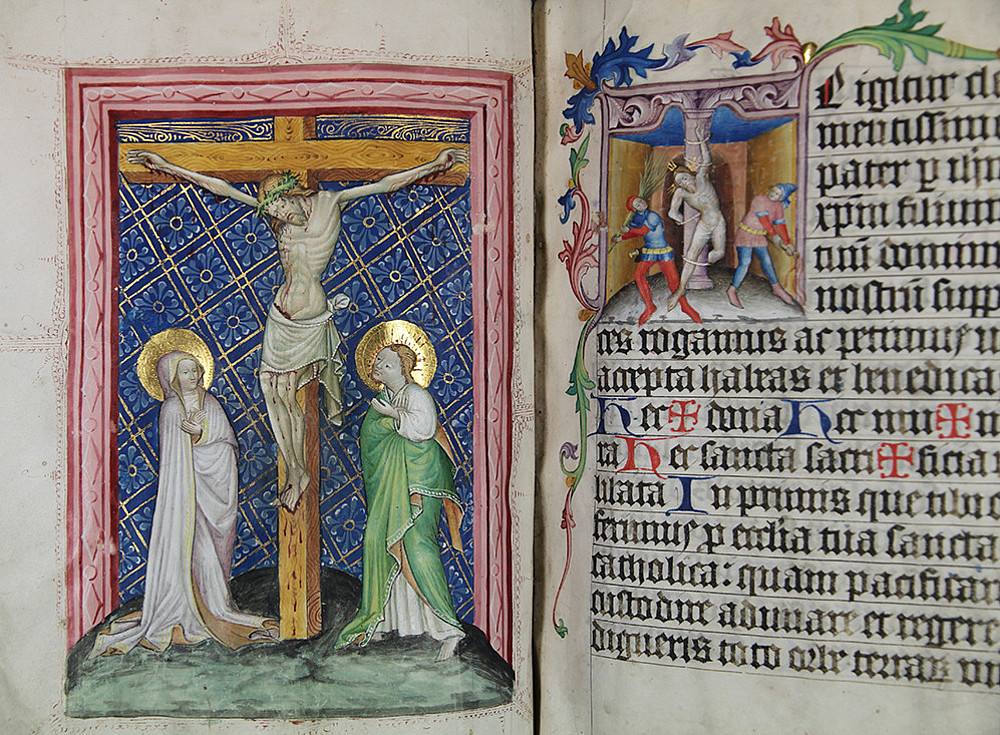 E igitur cle
mentissime
pater p ihm
xpm filium
tuu dominu
nostrū supp
ces rogamus ac petimus u
accepta habeas et benedica
Hec ✠ dona Hec mu ✠ n
ra Hec sancta sacri ✠ ficia i
libata In primis que tibi o
ferimus p ecclia tua sancta
catholica: quam pacificar
custodire adunare et regere
digneris toto orbe terraꝝ un